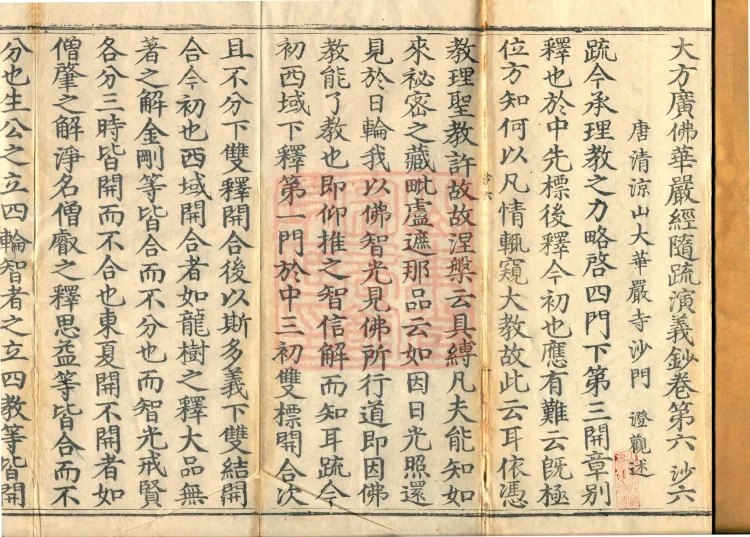 大方廣佛華嚴經隨疏演義鈔卷第六 沙六
唐清涼山大華嚴寺沙門 澄觀述
疏今承理教之力略啓四門下第三開章別
釋也於中先標後釋今初也應有難云既極
位方知何以凡情輒窺大教故此云耳依憑
教理聖教許故故涅槃云具縛凡夫能知如
來祕密之藏毗盧遮那品云如因日光照還
見於日輪我以佛智光見佛所行道即因佛
教能了教也即仰推之智信解而知耳疏今
初西域下釋第一門於中三初雙標開合次
且不分下雙釋開合後以斯多義下雙結開
合今初也西域開合者如龍樹之釋大品無
著之解金剛等皆合而不分也而智光戒賢
各分三時皆開而不合也東夏開不開者如
僧肇之解淨名僧叡之釋思益等皆合而不
分也生公之立四輪智者之立四教等皆開